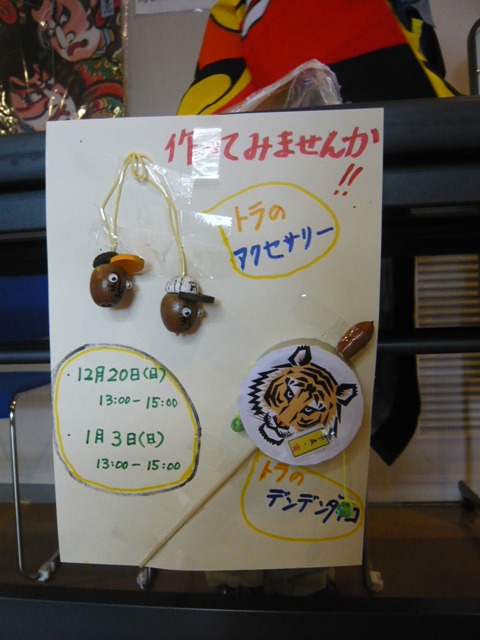 作ってみませんか
!!
トラの
アクセサリー
・12月20日(日)
13:00-15:00
・1月3日(日)
13:00-15:00
トラの
デンデンダイコ